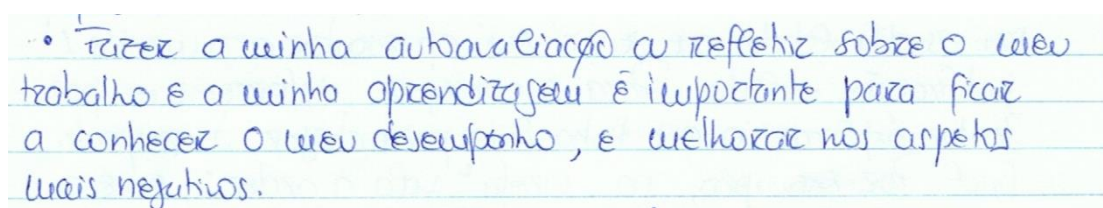 • Fazer a minha autoavaliação ou refletir sobre o meu
trabalho e a minha aprendizagem é importante para ficar
a conhecer o meu desempenho, e melhorar nos aspetos
mais negativos.